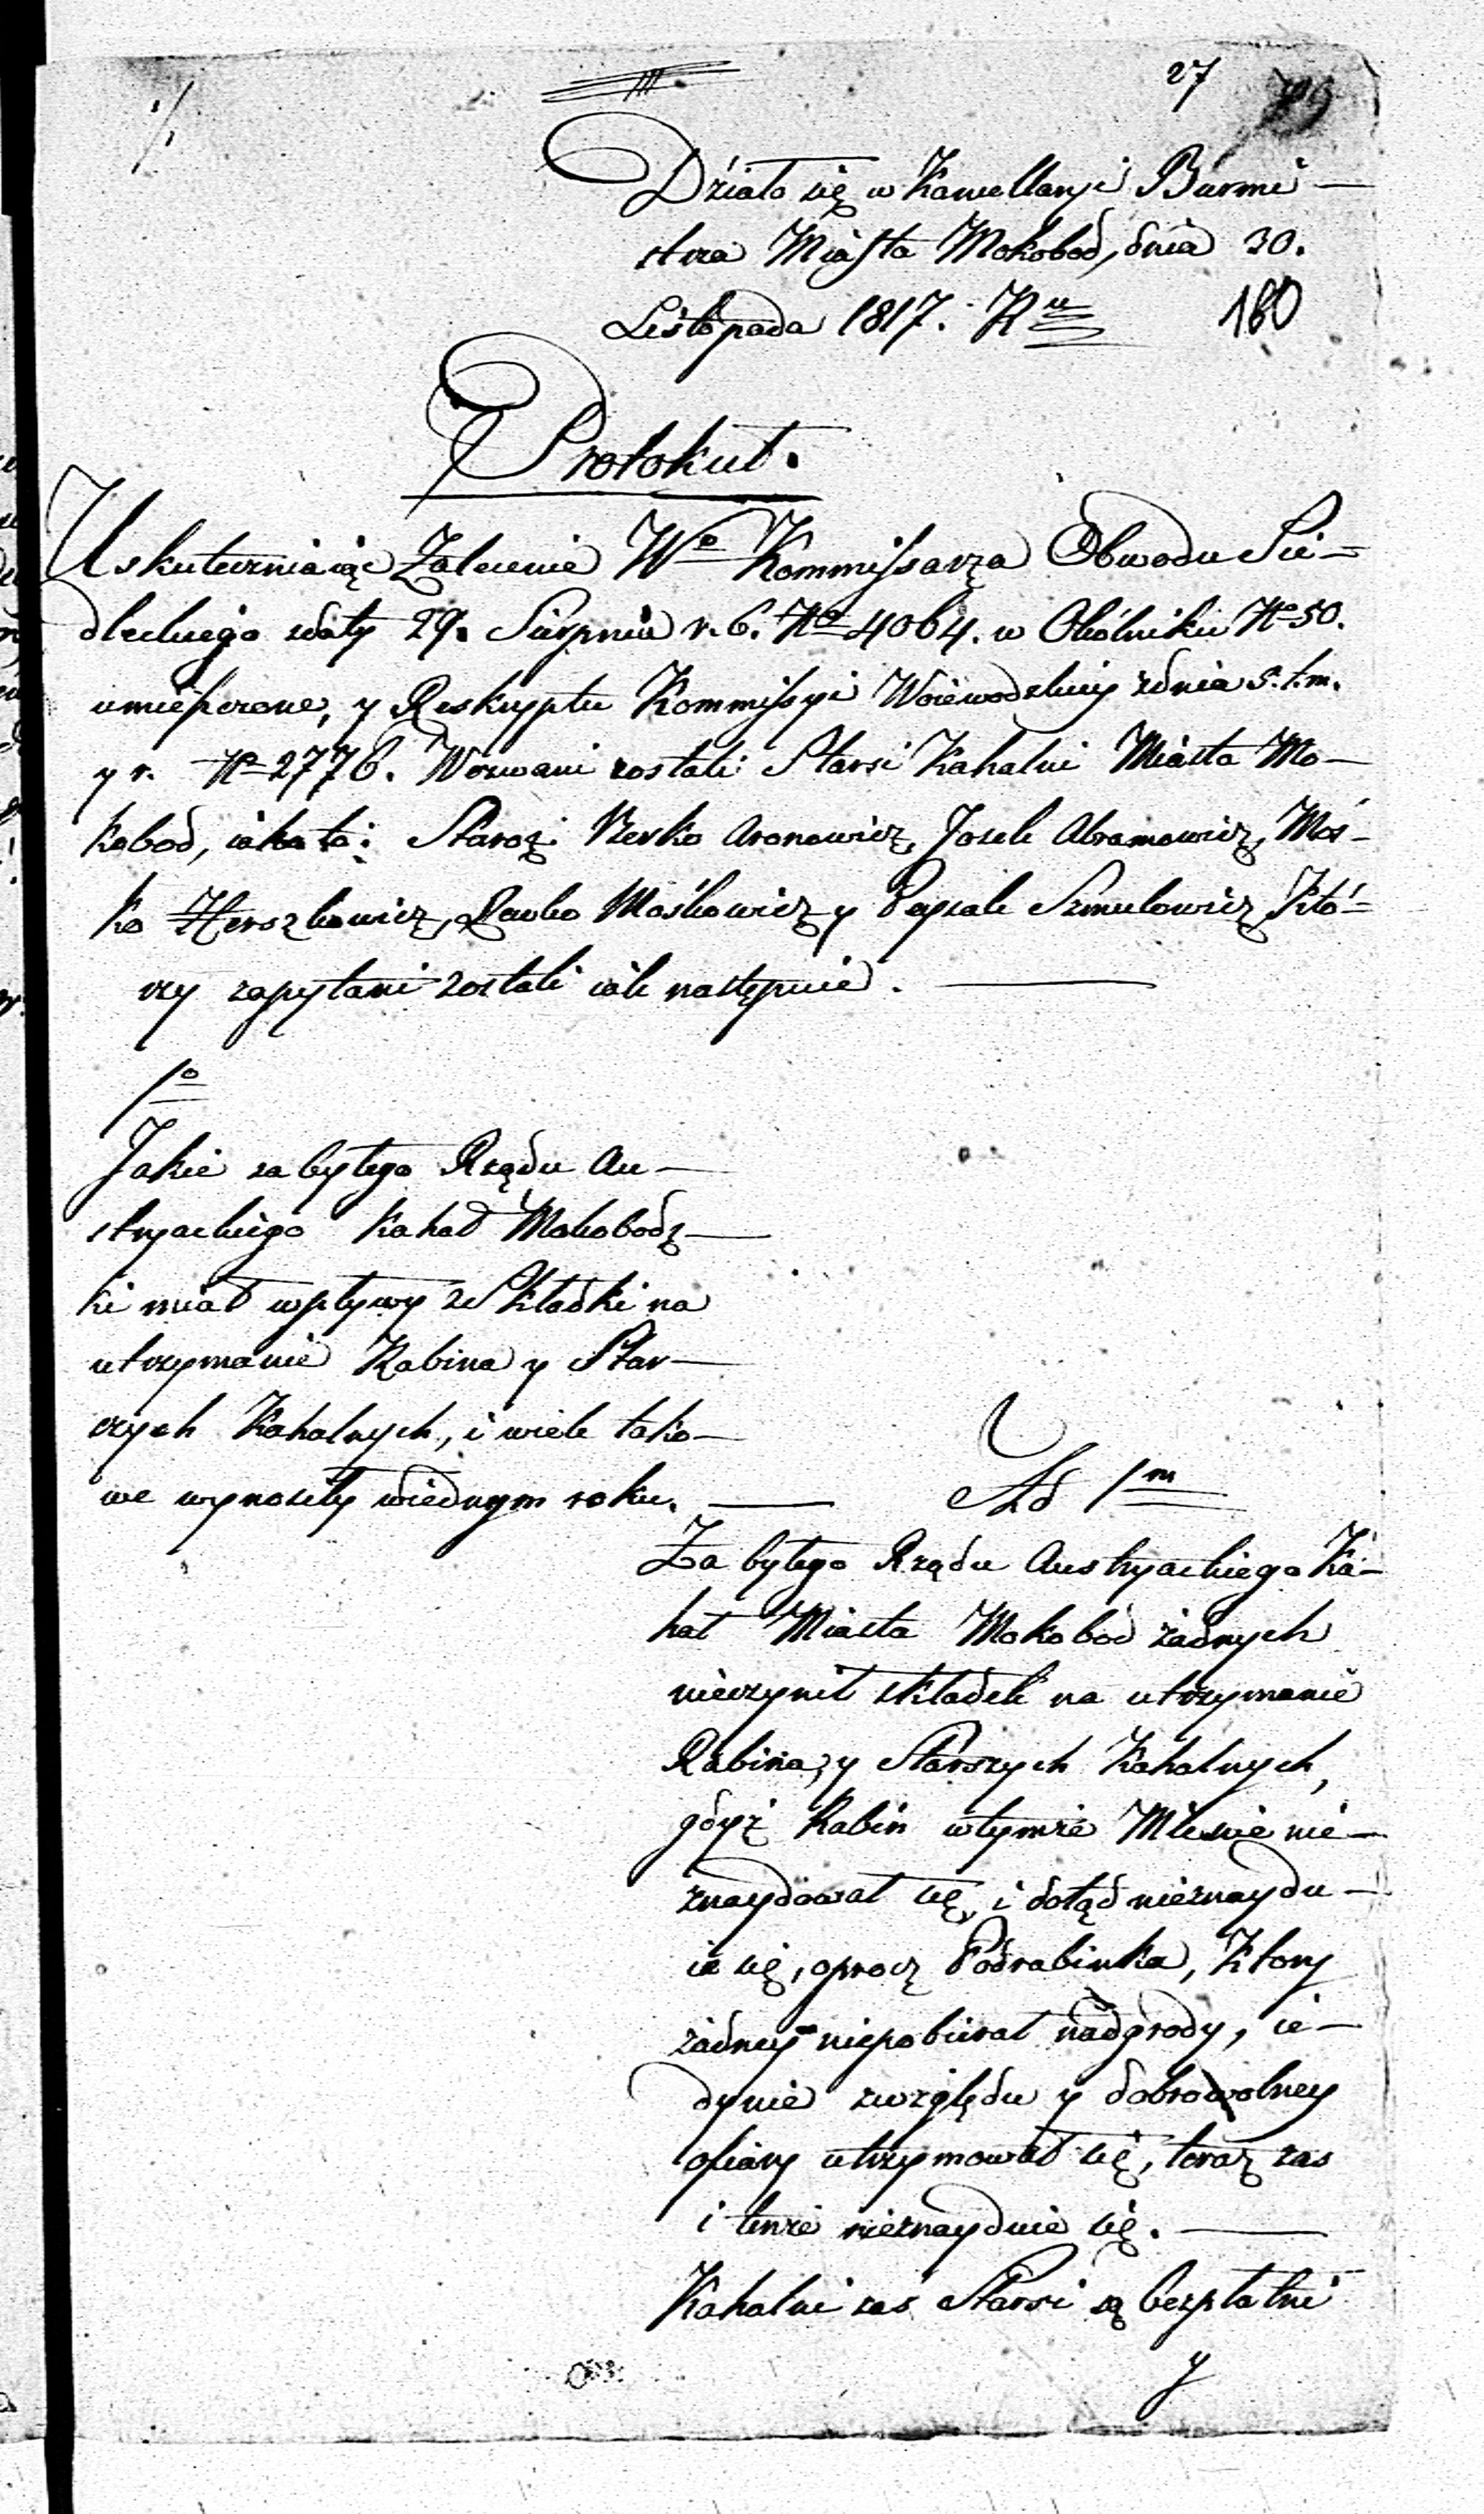 27
79
Działo się w Kancellaryi Burmi-
strza Miasta Mokobod, dnia 30.
Listopada 1817. Ru
160
Protokuł.
Uskuteczniaiąc Zalecenie Wo Kommissarza Obwodu Sie-
dleckiego z daty 29. Sierpnia r. b. No 4064. w Okólniku No 50.
umieszczone, y Reskryptu Kommissyi Woiewodzkiey z dnia 5. t. m.
y r. No 2776. Wezwani zostali Starsi Kahalni Miasta Mo-
kobod, iako to: Starozi Berko Aronowicz, Josek Abramowicz, Moś-
ko Herszkowicz, Lewko Mośkowicz y Paysak Szmulowicz, Któ-
rzy zapytani zostali iak następuie.
1o
Jakie za byłego Rządu Au-
stryackiego Kahał Mokobodz-
ki miał wpływy ze Składki na
utrzymanie Rabina y Star-
szych Kahalnych, i wiele tako-
we wynosiły wiednym roku.
Ad 1m
Za byłego Rządu Austryackiego Ka-
hał Miasta Mokobod żadnych
nieczynił składek na utrzymanie
Rabina, y Starszych Kahalnych,
gdyż Rabin wtymże Mieście nie-
znaydował się, i dotąd nieznaydu-
ie się, oprocz Podrabinka, Ktory
żadney niepobierał nadgrody, ie-
dynie zwzględu y dobrowolney
ofiary utrzymował się, teraz zas
i tenże nieznayduie się.
Kahalni zaś Starsi są bezpłatni
y